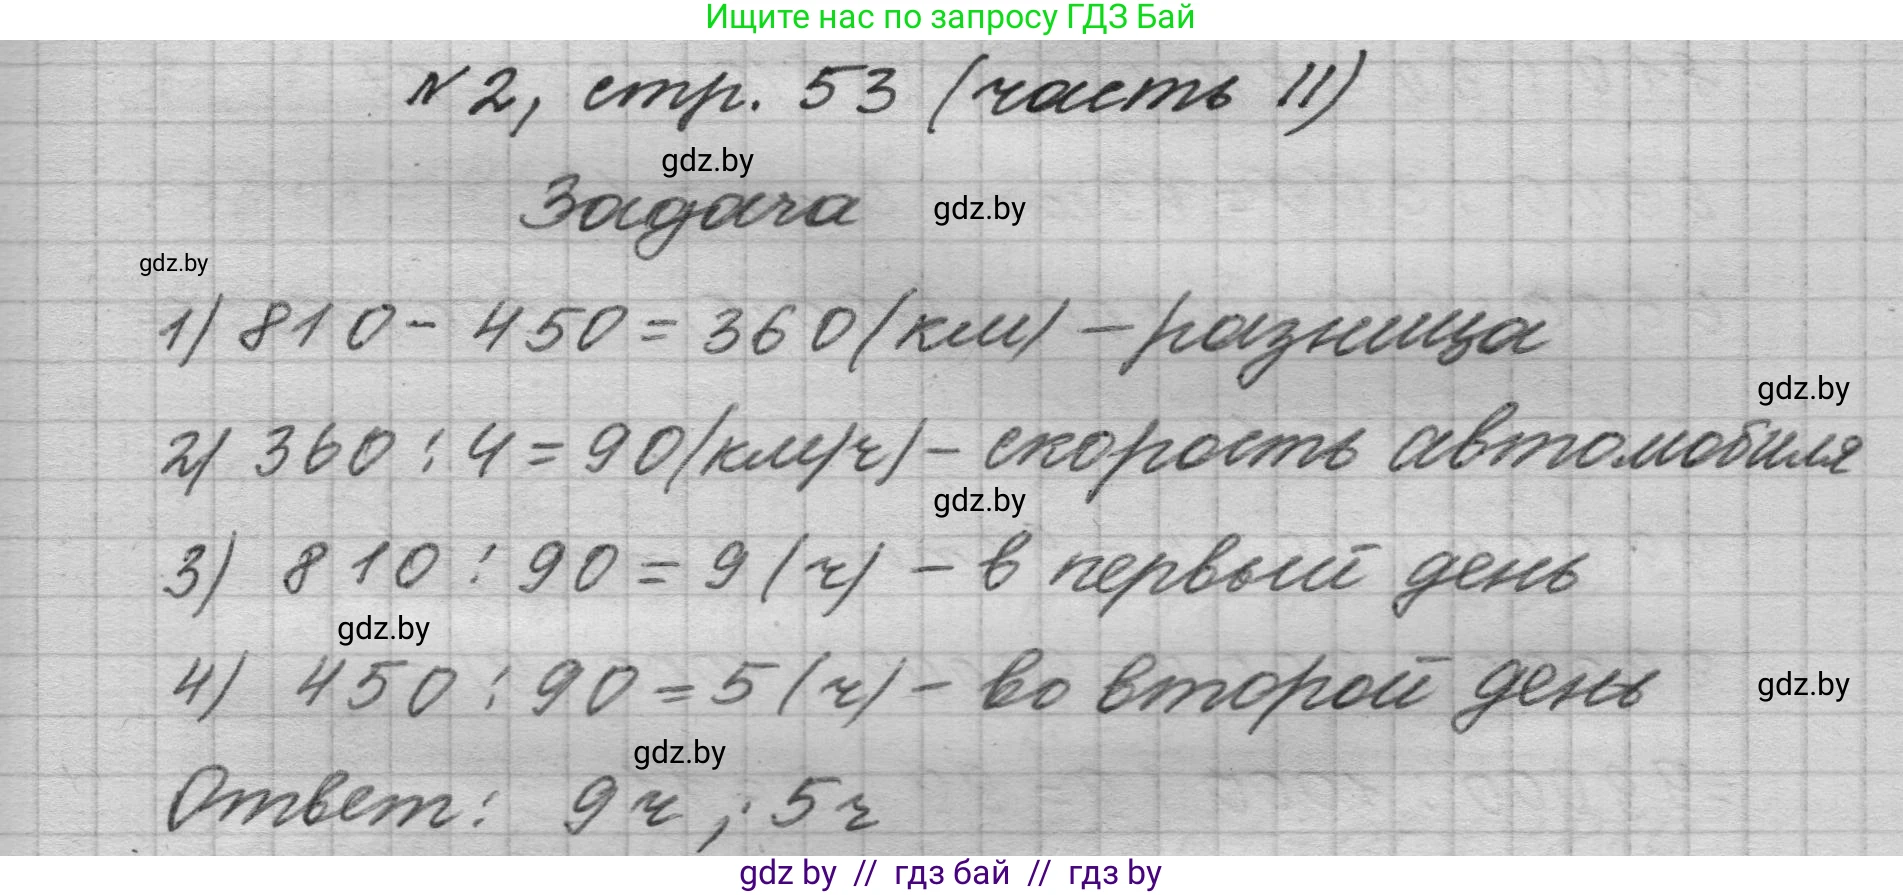 Ищите нас по запросу ГДЗ Бай
№2, стр. 53 (часть II)
gdz.by
Задача
gdz.by
gdz.by
1) 810 - 450 = 360 (км) - разница
gdz.by
2) 360 : 4 = 90 (км/ч) - скорость автомобиля
gdz.by
3) 810 : 90 = 9 (ч) - в первый день
gdz.by
4) 450 : 90 = 5 (ч) - во второй день
gdz.by
gdz.by
Ответ: 9 ч ; 5 ч
gdz by // гдз бай // гдз by